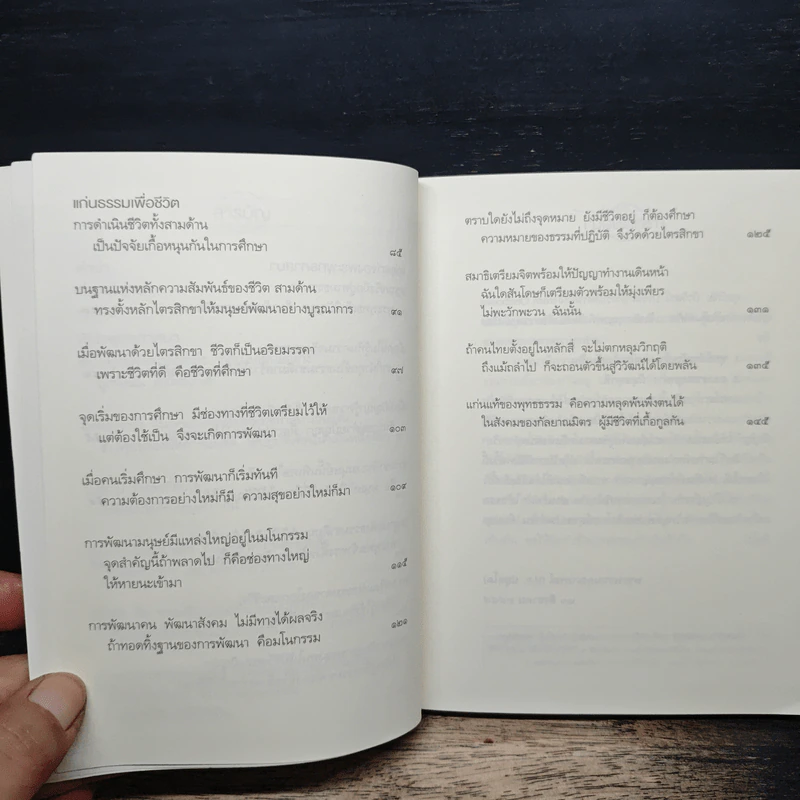 แก่นธรรมเพื่อชีวิต
การดำเนินชีวิตทั้งสามด้าน
เป็นปัจจัยเกื้อหนุนกันในการศึกษา ๘๕
บนฐานแห่งหลักความสัมพันธ์ของชีวิต สามด้าน
ทรงตั้งหลักไตรสิกขาให้มนุษย์พัฒนาอย่างบูรณาการ ๙๑
เมื่อพัฒนาด้วยไตรสิกขา ชีวิตก็เป็นอริยมรรคา
เพราะชีวิตที่ดี คือชีวิตที่ศึกษา ๙๗
จุดเริ่มของการศึกษา มีช่องทางที่ชีวิตเตรียมไว้ให้
แต่ต้องใช้เป็น จึงจะเกิดการพัฒนา ๑๐๓
เมื่อคนเริ่มศึกษา การพัฒนาก็เริ่มทันที
ความต้องการอย่างใหม่ก็มี ความสุขอย่างใหม่ก็มา ๑๐๙
การพัฒนามนุษย์มีแหล่งใหญ่อยู่ในมโนกรรม
จุดสำคัญนี้ถ้าพลาดไป ก็คือช่องทางใหญ่
ให้หายนะเข้ามา ๑๑๕
การพัฒนาคน พัฒนาสังคม ไม่มีทางได้ผลจริง
ถ้าทอดทิ้งฐานของการพัฒนา คือมโนกรรม ๑๒๑
ตราบใดยังไม่ถึงจุดหมาย ยังมีชีวิตอยู่ ก็ต้องศึกษา
ความหมายของธรรมที่ปฏิบัติ จึงวัดด้วยไตรสิกขา ๑๒๕
สมาธิเตรียมจิตพร้อมให้ปัญญาทำงานเดินหน้า
ฉันใดสันโดษก็เตรียมตัวพร้อมให้มุ่งเพียร
ไม่พะวักพะวน ฉันนั้น ๑๓๑
ถ้าคนไทยตั้งอยู่ในหลักสี่ จะไม่ตกหลุมวิกฤติ
ถึงแม้ถลำไป ก็จะถอนตัวขึ้นสู่วิวัฒน์ได้โดยพลัน ๑๓๕
แก่นแท้ของพุทธธรรม คือความหลุดพ้นพึ่งตนได้
ในสังคมของกัลยาณมิตร ผู้มีชีวิตที่เกื้อกูลกัน ๑๔๕